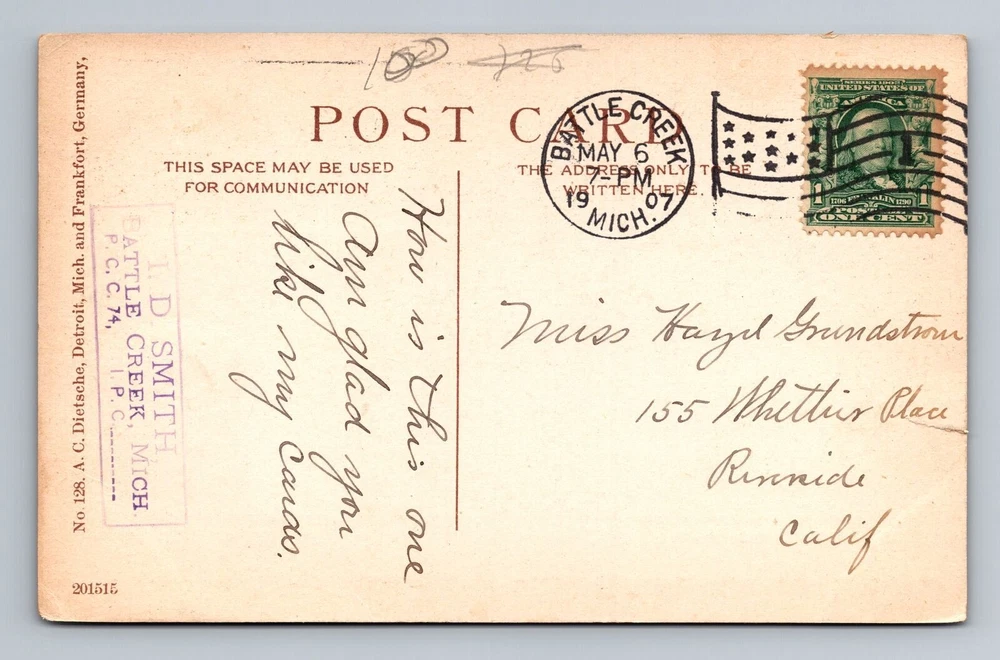 100
POST CARD
THIS SPACE MAY BE USED
FOR COMMUNICATION
THE ADDRESS ONLY TO BE
WRITTEN HERE.
BATTLE CREEK
MAY 6
7-PM
1907
MICH.
SERIES 1902
UNITED STATES OF
AMERICA
1
1706 FRANKLIN 1790
POSTAGE
ONE CENT
How is this one
Am glad you
like my cards.
Miss Hazel Grundstrom
155 Whittier Place
Riverside
Calif
I. D. SMITH,
BATTLE CREEK, MICH
P. C. C. 74, I. P. C.
No. 128. A. C. Dietsche, Detroit, Mich. and Frankfort, Germany,
201515